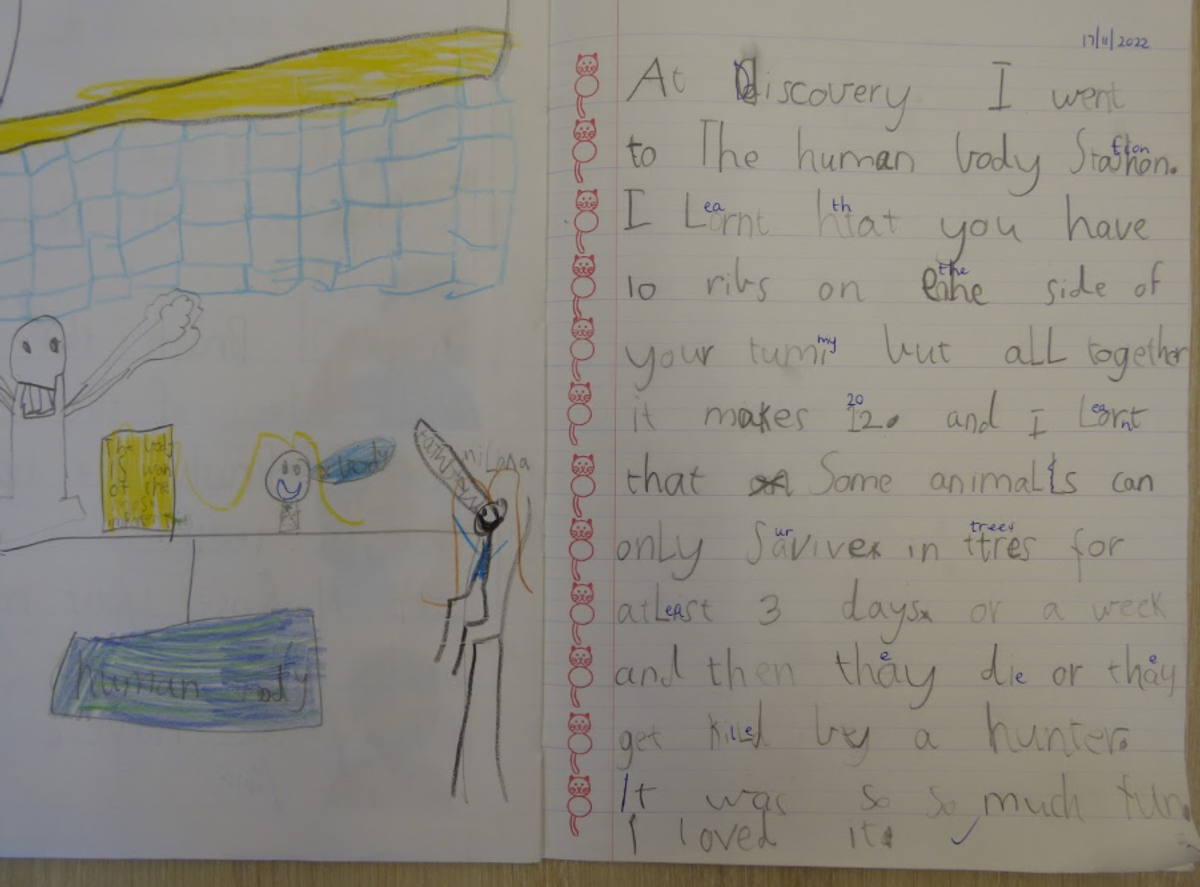 The body
IS wan
of the
body
milana
human body
17/11/2022
At Discovery I went
to The human body Stashon.
tion
I Lornt htat you have
ea th
10 ribs on eathe side of
the
your tumi but all together
my
it makes 12. and I Lornt
20 ea
that Some animalls can
only Savivex in ttres for
ur trees
atLeast 3 days or a week
and then thay die or thay
e e
get killed by a hunter.
It was so so much fun.
I loved it.